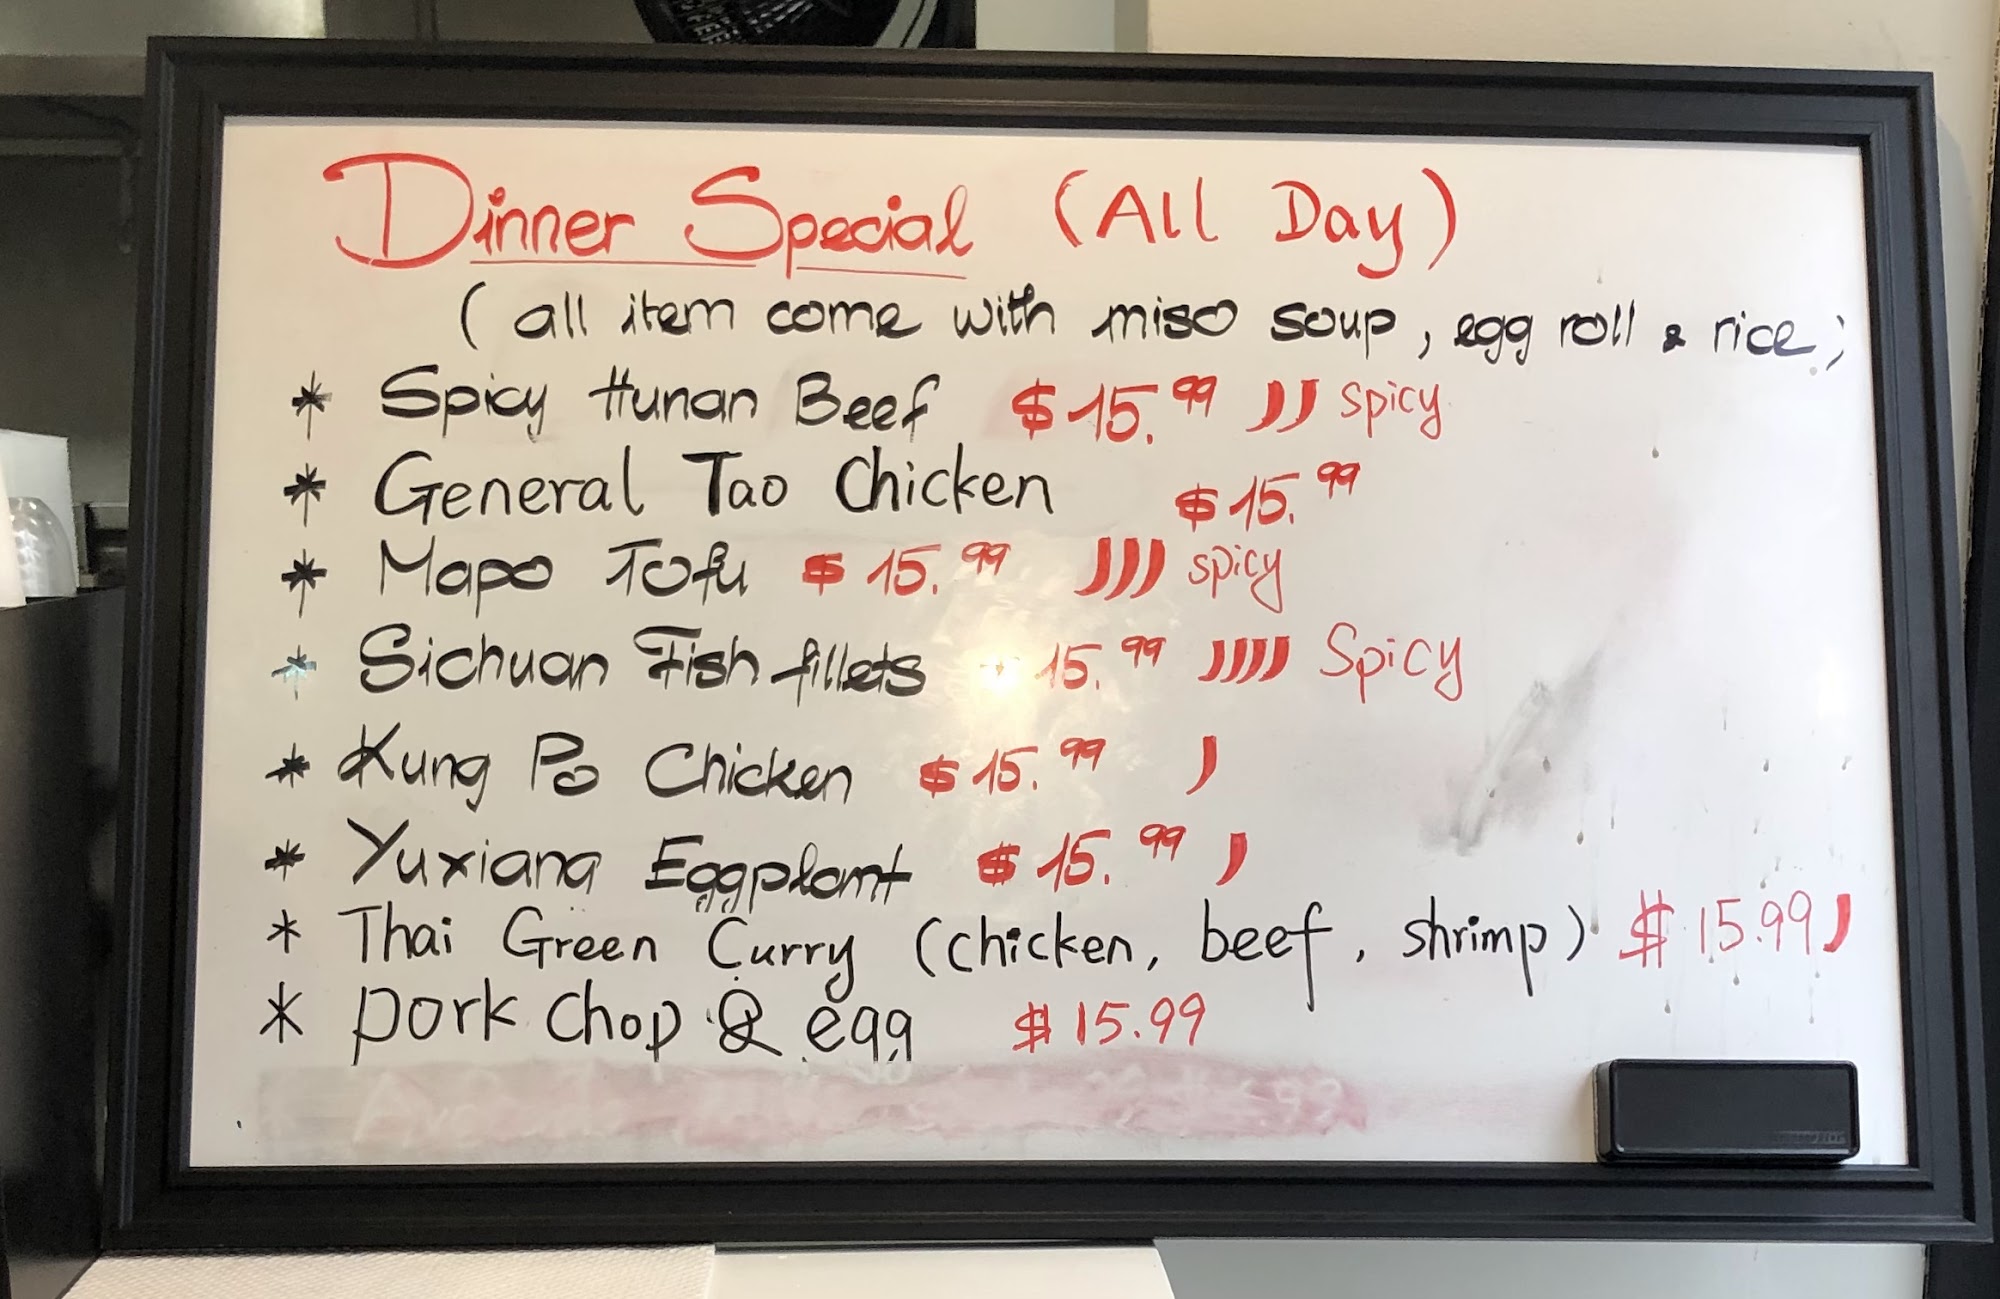 Dinner Special (All Day)
(all item come with miso soup, egg roll & rice)
* Spicy Hunan Beef $15.99 )) spicy
* General Tao Chicken $15.99
* Mapo Tofu $15.99 ))) spicy
* Sichuan Fish fillets 15.99 )))) Spicy
* Kung Po Chicken $15.99 )
* Yuxiang Eggplant $15.99 )
* Thai Green Curry (chicken, beef, shrimp) $15.99 )
* Pork Chop & egg $15.99